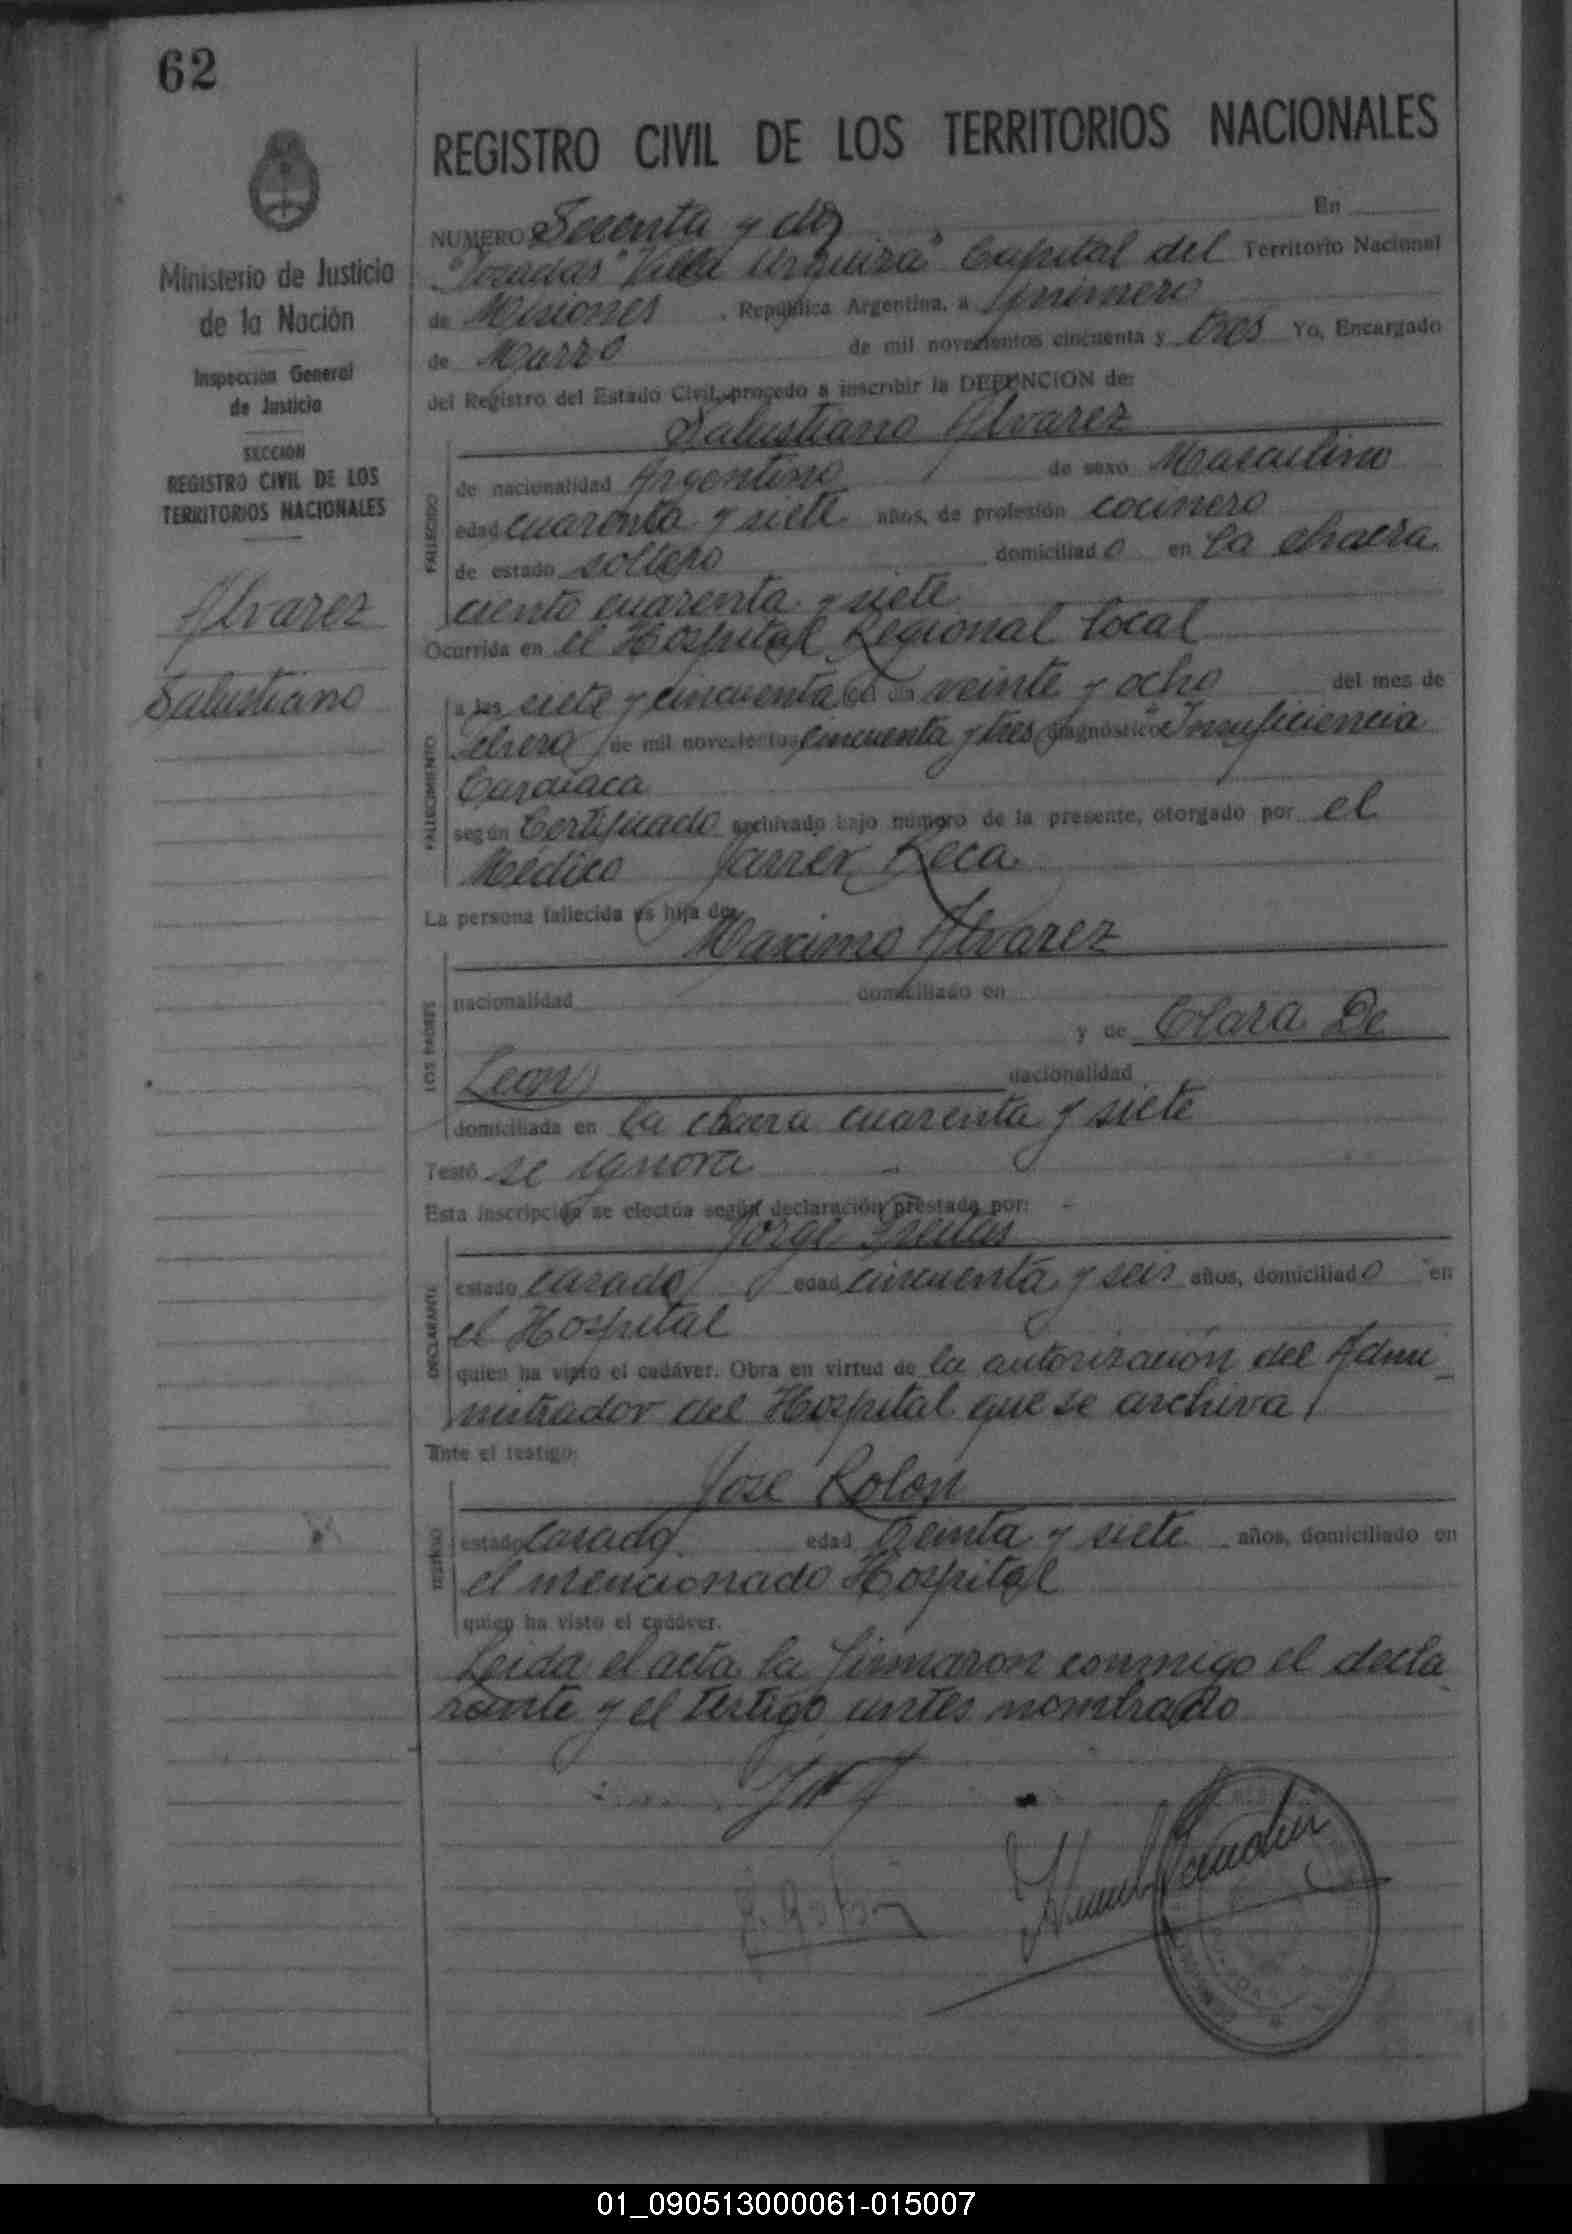 62
REGISTRO CIVIL DE LOS TERRITORIOS NACIONALES
Ministerio de Justicia
de la Nación
Inspección General
de Justicia
SECCION
REGISTRO CIVIL DE LOS
TERRITORIOS NACIONALES
Alvarez
Salustiano
NUMERO Secenta y dos En
"Posadas" Villa Urquiza" Capital del Territorio Nacional
de Misiones, República Argentina, a primero
de Marzo de mil novecientos cincuenta y tres Yo, Encargado
del Registro del Estado Civil, procedo a inscribir la DEFUNCION de:
Salustiano Alvarez
FALLECIDO
de nacionalidad Argentino de sexo Masculino
edad cuarenta y siete años, de profesión cocinero
de estado soltero domiciliado en la chacra
ciento cuarenta y siete
Ocurrida en el Hospital Regional local
FALLECIMIENTO
a las siete y cincuenta del día veinte y ocho del mes de
Febrero de mil novecientos cincuenta y tres diagnóstico "Insuficiencia
Cardíaca
según Certificado archivado bajo número de la presente, otorgado por el
Médico Javier Reca
La persona fallecida es hija de:
Maximo Alvarez
LOS PADRES
nacionalidad domiciliado en
y de Clara De
Leon nacionalidad
domiciliada en la chacra cuarenta y siete
Testó se ignora
Esta inscripción se efectúa según declaración prestada por:
Jorge Freitas
DECLARANTE
estado casado edad cincuenta y seis años, domiciliado en
el Hospital
quien ha visto el cadáver. Obra en virtud de la autorización del Admi-
nistrador del Hospital que se archiva
Ante el testigo:
José Rolon
TESTIGO
estado casado edad treinta y siete años, domiciliado en
el mencionado Hospital
quien ha visto el cadáver.
Leida el acta la firmaron conmigo el decla
rante y el testigo antes nombrado
01_090513000061-015007